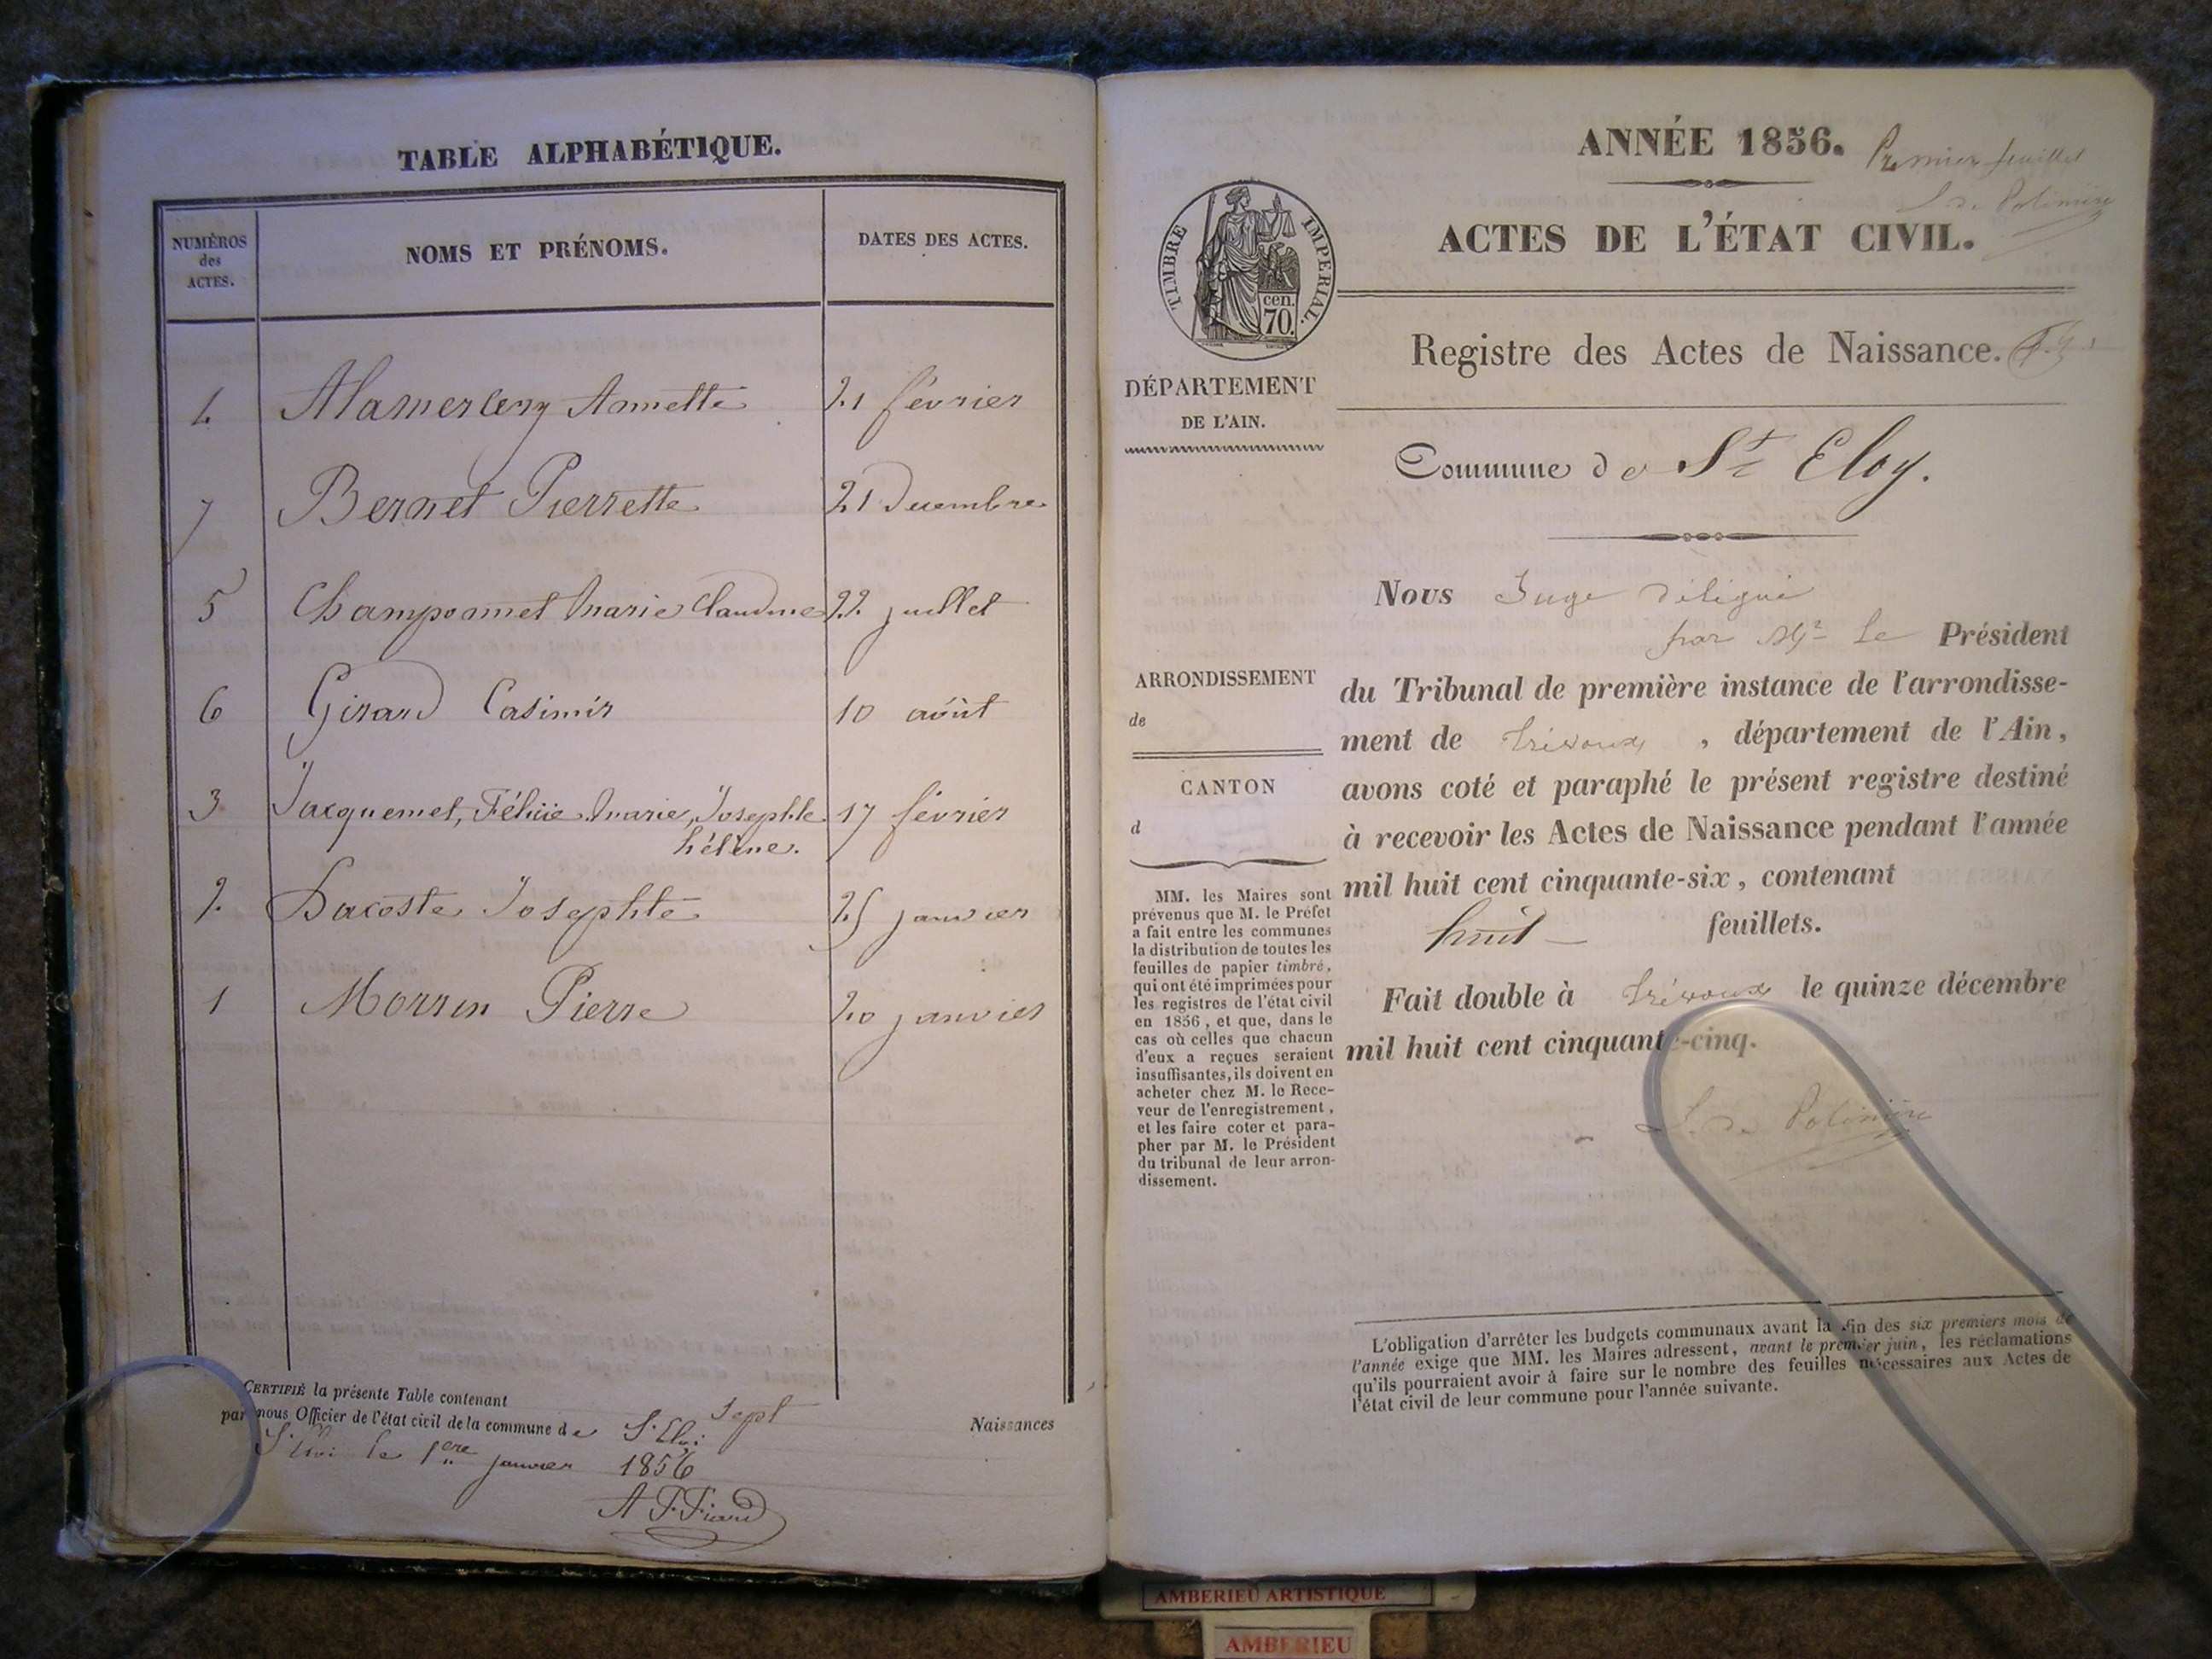 TABLE ALPHABÉTIQUE.
NUMÉROS des ACTES.
NOMS ET PRÉNOMS.
DATES DES ACTES.
4 Alamercery Annette 21 février
7 Bernet Pierrette 21 Decembre
5 Champonnet Marie Claudine 22 juillet
6 Girard Casimir 10 août
3 Jacquemet, Félicie Marie, Josephte 17 février
hélène.
2 Lacoste Josephte 25 janvier
1 Morrin Pierre 20 janvier
CERTIFIÉ la présente Table contenant sept Naissances
par nous Officier de l'état civil de la commune de St. Eloi
St. Eloi le 1ere janvier 1856
ANNÉE 1856.
Premier feuillet
S. de Polinière
ACTES DE L'ÉTAT CIVIL.
TIMBRE IMPERIAL.
cen.
70.
Registre des Actes de Naissance.
DÉPARTEMENT
DE L'AIN.
Commune de St Eloy.
Nous Juge délégué
par Mr le Président
du Tribunal de première instance de l'arrondisse-
ment de Trévoux, département de l'Ain,
avons coté et paraphé le présent registre destiné
à recevoir les Actes de Naissance pendant l'année
mil huit cent cinquante-six, contenant
huit feuillets.
Fait double à Trévoux le quinze décembre
mil huit cent cinquante-cinq.
S. de Polinière
ARRONDISSEMENT
de
CANTON
d
MM. les Maires sont
prévenus que M. le Préfet
a fait entre les communes
la distribution de toutes les
feuilles de papier timbré,
qui ont été imprimées pour
les registres de l'état civil
en 1856, et que, dans le
cas où celles que chacun
d'eux a reçues seraient
insuffisantes, ils doivent en
acheter chez M. le Rece-
veur de l'enregistrement,
et les faire coter et para-
pher par M. le Président
du tribunal de leur arron-
dissement.
L'obligation d'arrêter les budgets communaux avant la fin des six premiers mois de
l'année exige que MM. les Maires adressent, avant le premier juin, les réclamations
qu'ils pourraient avoir à faire sur le nombre des feuilles nécessaires aux Actes de
l'état civil de leur commune pour l'année suivante.
AMBERIEU ARTISTIQUE
AMBERIEU